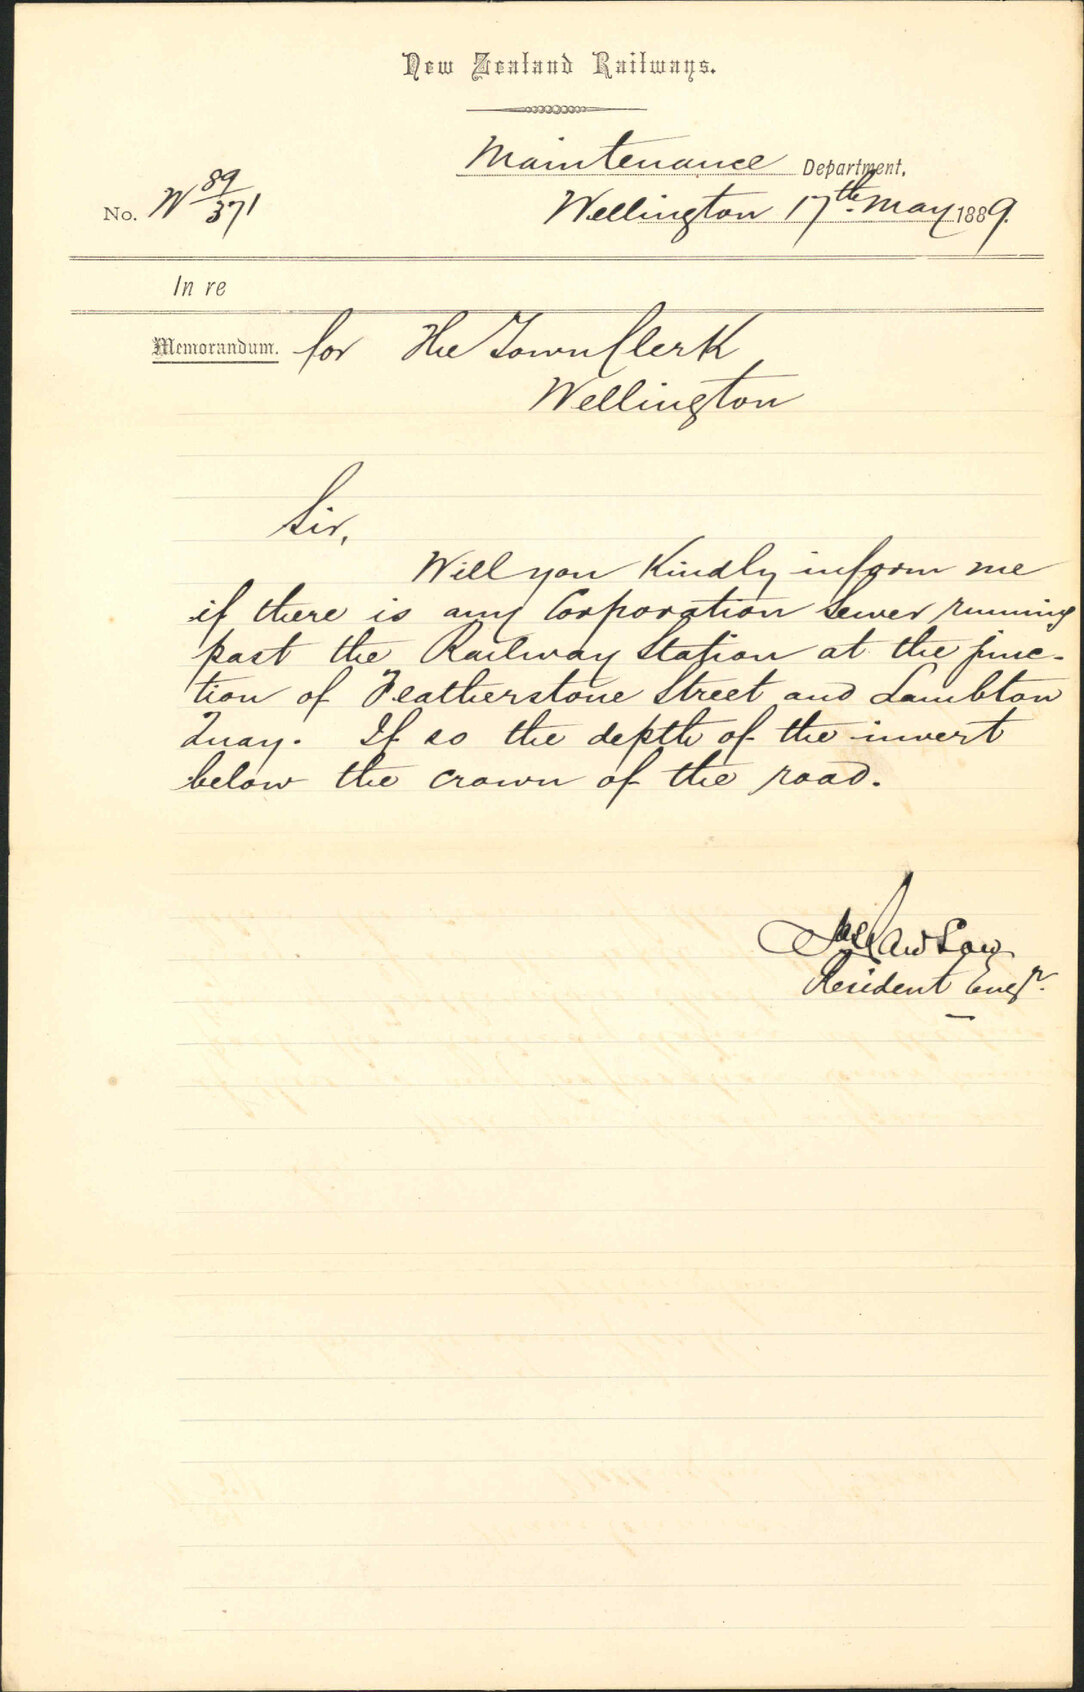 New Zealand Railways.
Maintenance Department,
No. W 89/371
Wellington 17th May 1889.
In re
Memorandum. for The Town Clerk
Wellington
Sir,
Will you Kindly inform me
if there is any Corporation Sewer running
past the Railway Station at the junc-
tion of Featherstone Street and Lambton
Quay. If so the depth of the invert
below the crown of the road.
Resident Engr.